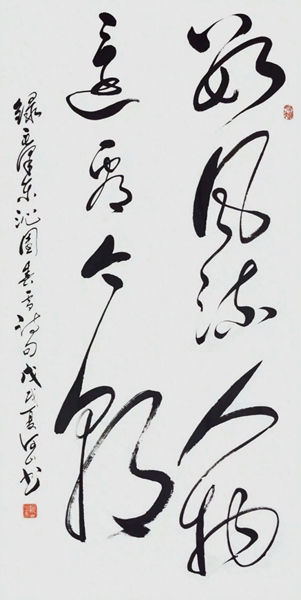 数风流人物
还看今朝
录毛泽东沁园春雪诗句戊戌夏河山书